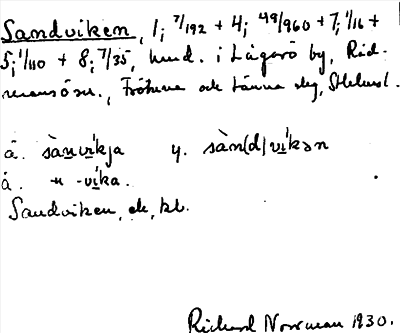 Sandviken, 1; 7/192 + 4; 49/960 + 7; 1/16 +
5; 1/110 + 8; 7/35, hmd. i Lågarö by, Råd-
mansö sn., Frötuna och Länna slg, Sthlms l.
ä. sànvíkja y. sàn(d)víkən
ä. -"- -víka.
Sandviken, ek, kl.
Rickard Norrman 1930.